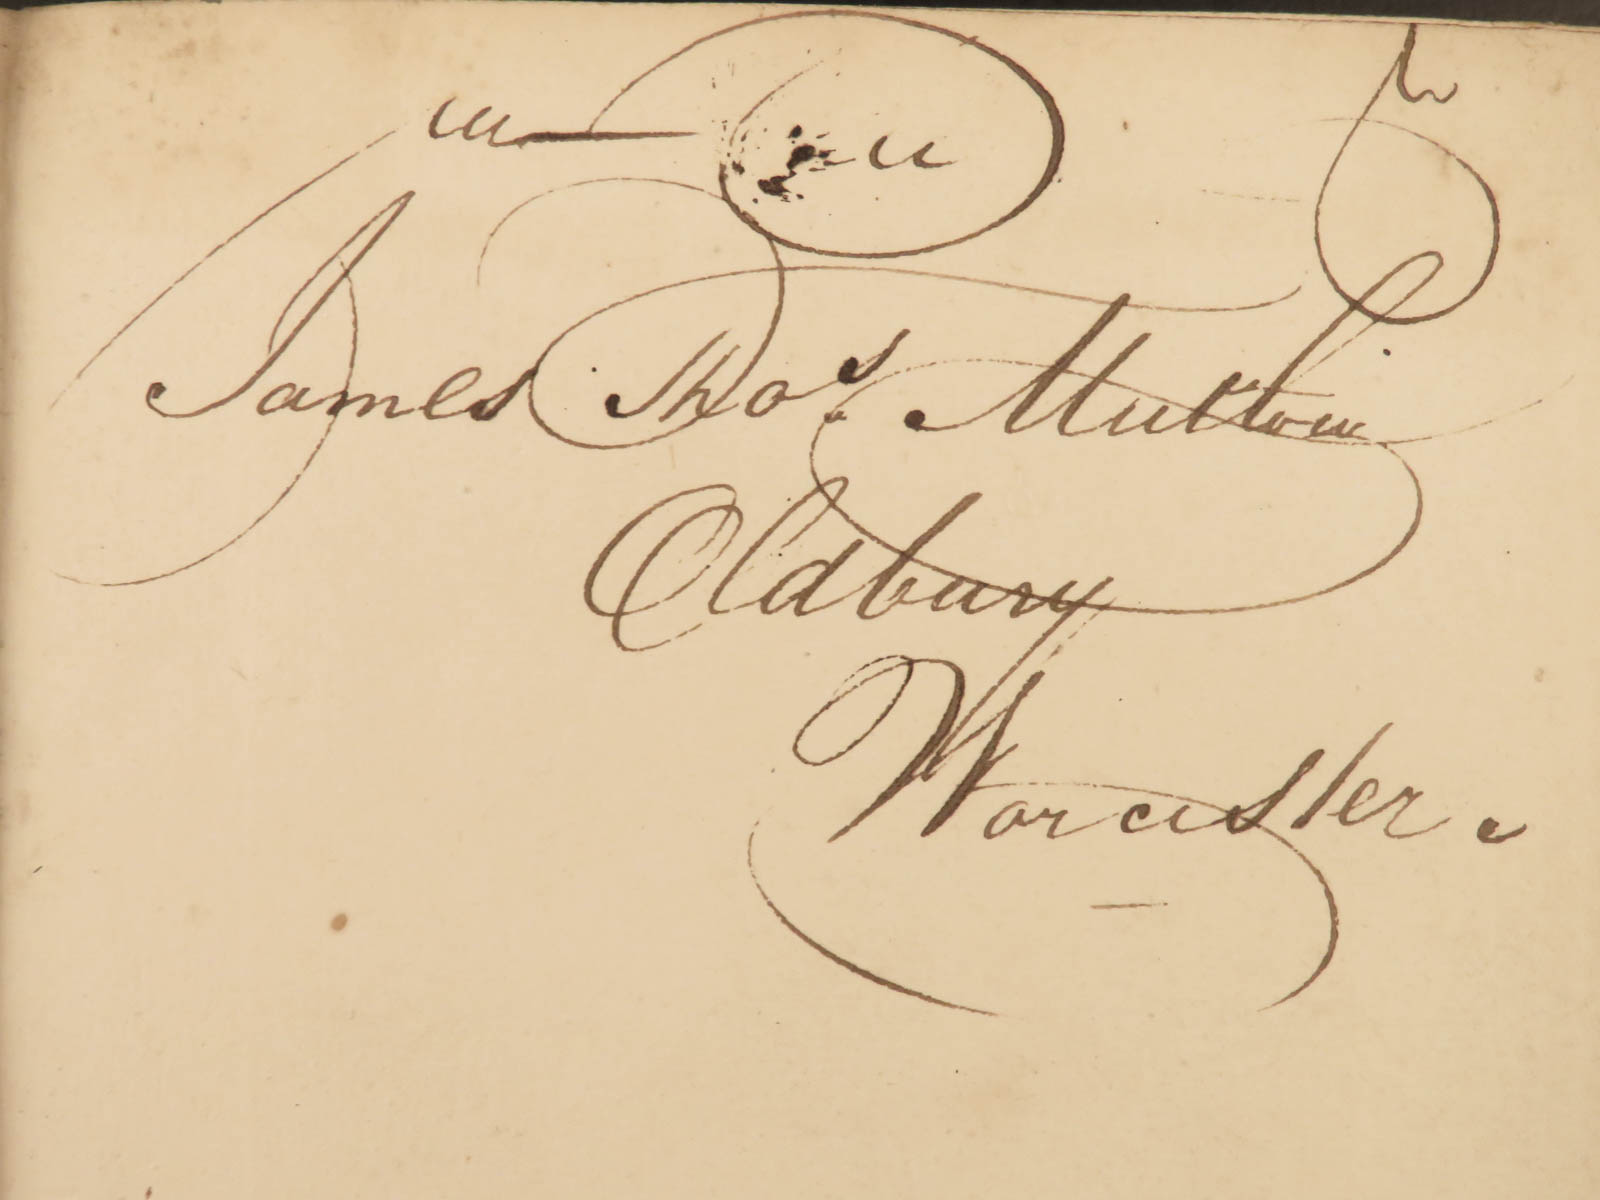 James Thos. Mutlow
Oldbury
Worcester.